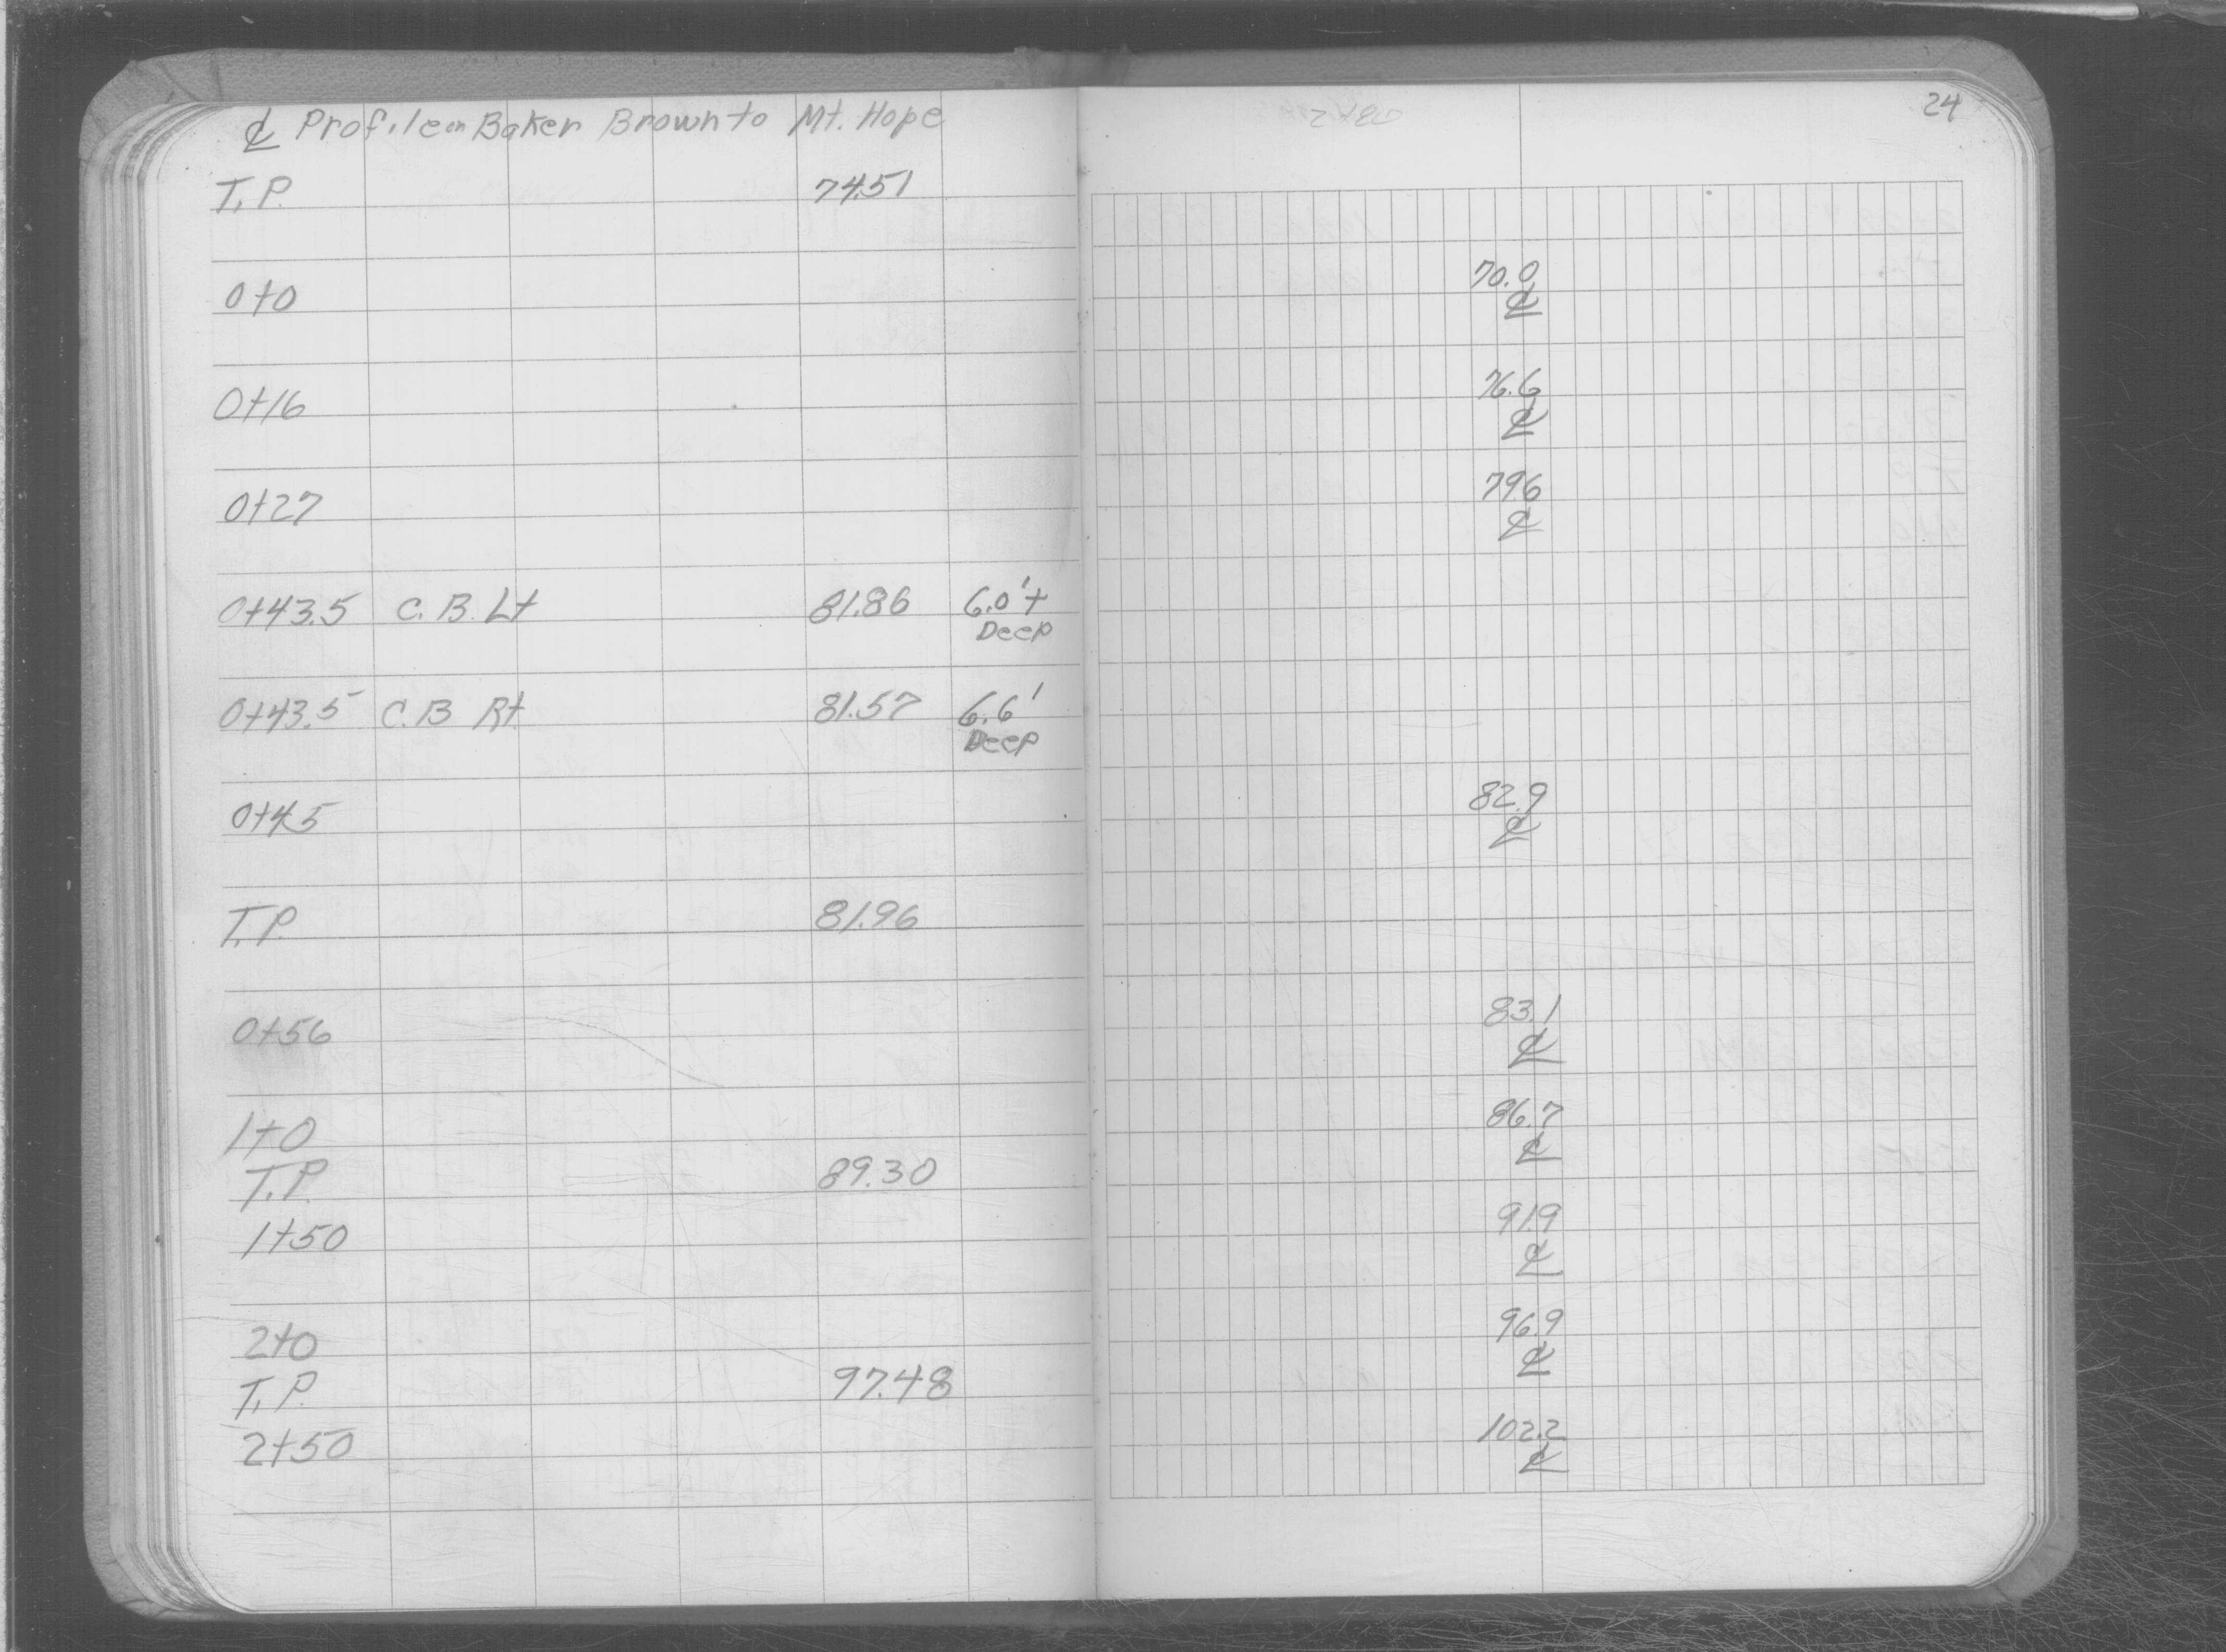 ℄ Profile on Baker Brown to Mt. Hope
24
T.P. 74.51
0+0 70.0
℄
0+16 76.6
℄
0+27 79.6
℄
0+43.5 C.B. Lt 81.86 6.0'+
Deep
0+43.5 C.B Rt 81.57 6.6'
Deep
0+45 82.9
℄
T.P. 81.96
0+56 83.1
℄
1+0 86.7
℄
T.P. 89.30
1+50 91.9
℄
2+0 96.9
℄
T.P. 97.48
2+50 102.2
℄